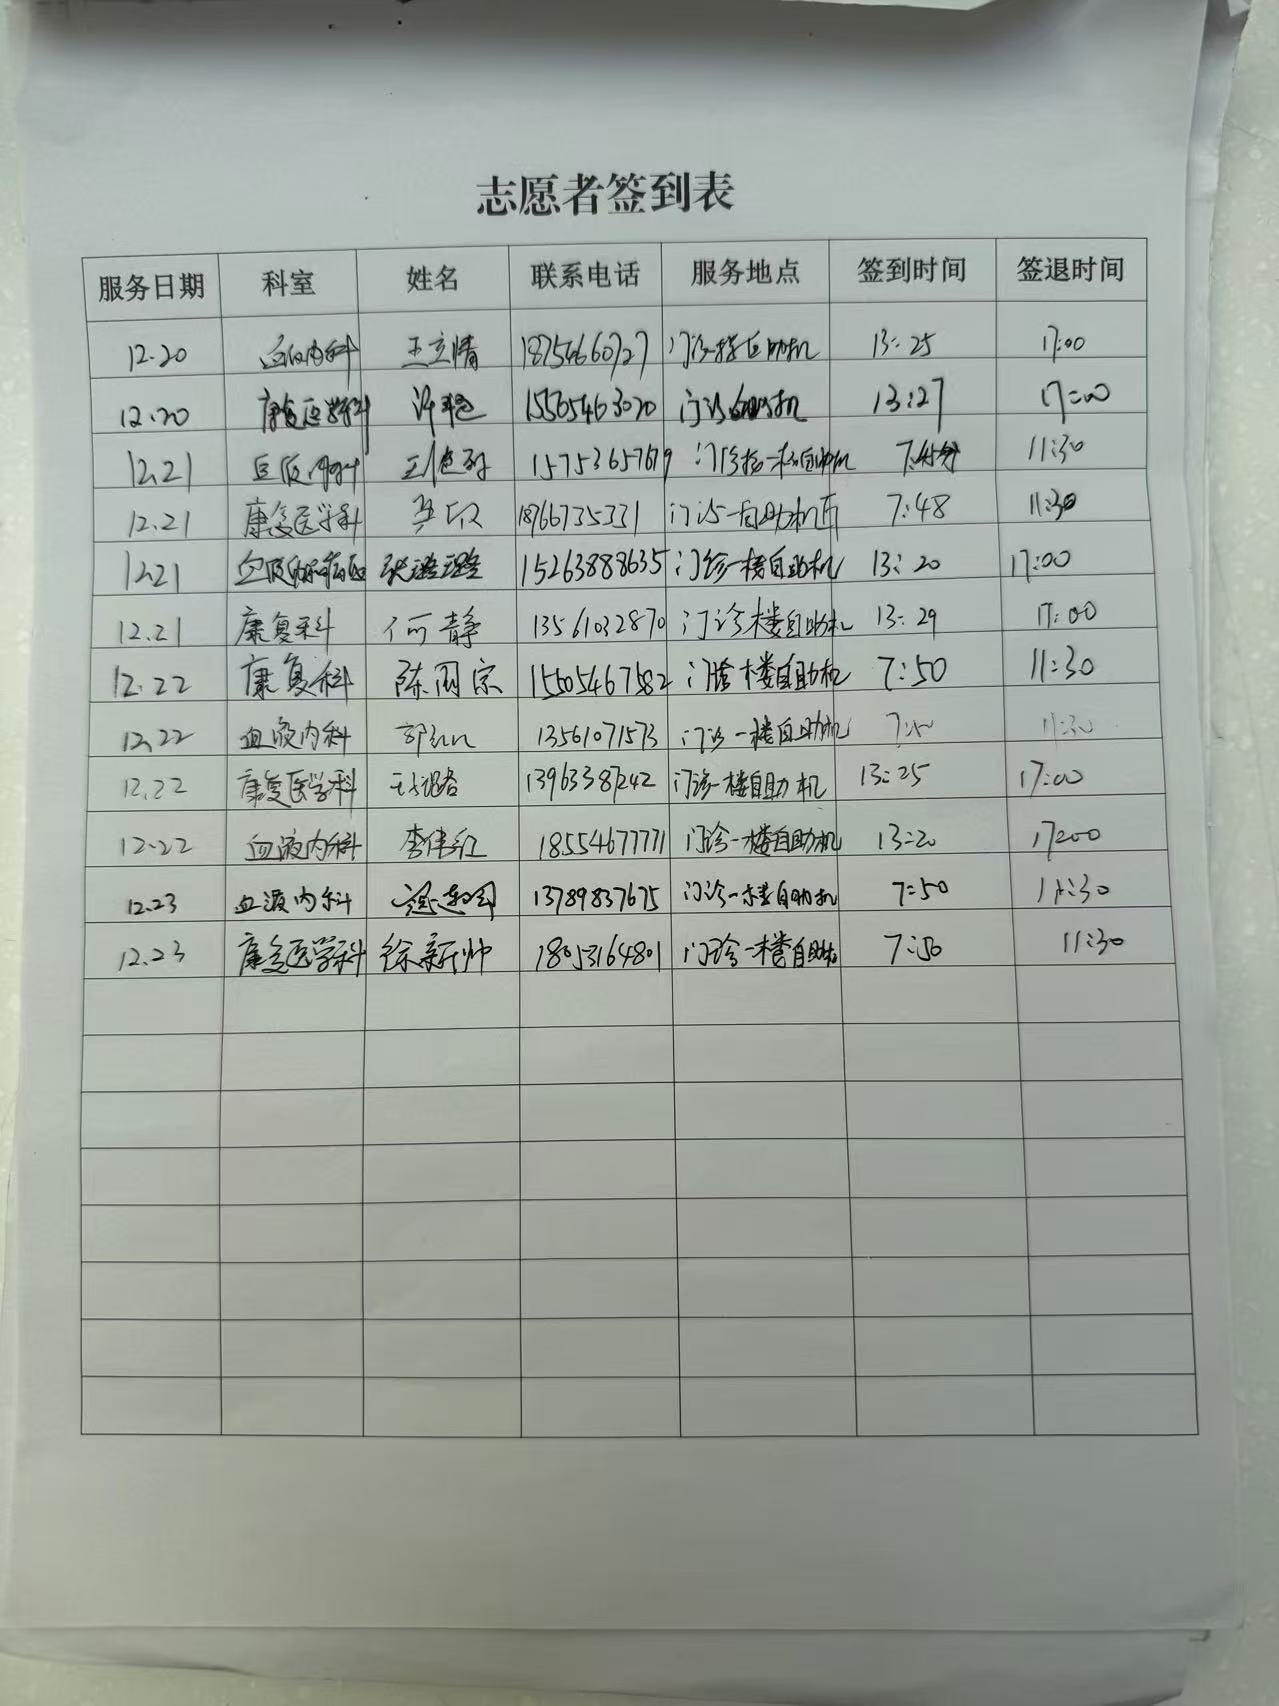 志愿者签到表
服务日期 科室 姓名 联系电话 服务地点 签到时间 签退时间
12.20 血液内科 王立晴 18754660727 门诊一楼自助机 13:25 17:00
12.20 康复医学科 许 15565463020 门诊自助机 13:27 17:00
12.21 血液内科 15753657679 门诊楼一楼自助机 7:45分 11:30
12.21 康复医学科 18766735331 门诊一自助机 7:48 11:30
12.21 血液内科 张 15263888635 门诊一楼自助机 13:20 17:00
12.21 康复科 何静 13561032870 门诊楼自助机 13:29 17:00
12.22 康复科 陈国宗 15505467582 门诊楼自助机 7:50 11:30
12.22 血液内科 郭红红 13561071573 门诊一楼自助机 11:30
12.22 康复医学科 13963387242 门诊一楼自助机 13:25 17:00
12.22 血液内科 李伟红 18554677771 门诊一楼自助机 13:20 17:00
12.23 血液内科 13789837675 门诊一楼自助机 7:50 11:30
12.23 康复医学科 徐新帅 18053164801 门诊一楼自助机 7:50 11:30